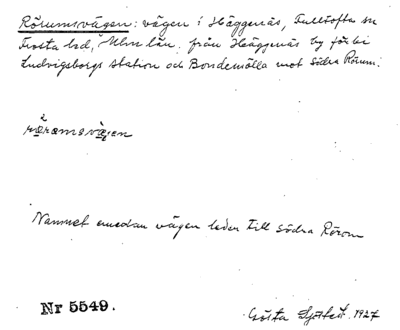 Rörumsvägen: vägen i Häggenäs, Fulltofta sn
Frosta hd, Mlm län, från Häggenäs by förbi
Ludvigsborgs station och Bondemölla mot södra Rörum.
Namnet emedan vägen leder till södra Rörum
Nr 5549.
Gösta 1927